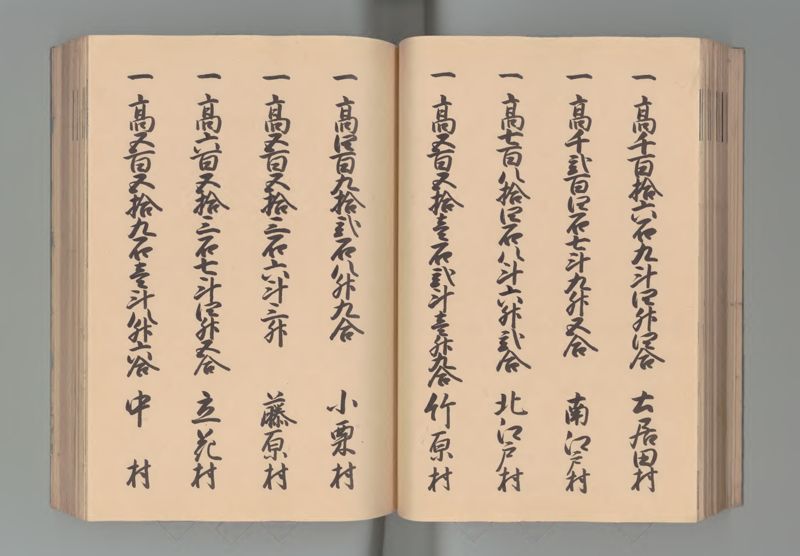 一 高千百拾六石九斗四升四合 土居田村
一 高千弐百四石七斗九升五合 南江戸村
一 高七百八拾四石八斗六升弐合 北江戸村
一 高五百五拾壱石弐斗壱升九合 竹原村
一 高四百九拾弐石八升九合 小栗村
一 高五百五拾三石六斗三升 藤原村
一 高六百五拾三石七斗四升五合 立花村
一 高五百五拾九石壱斗八升六合 中村